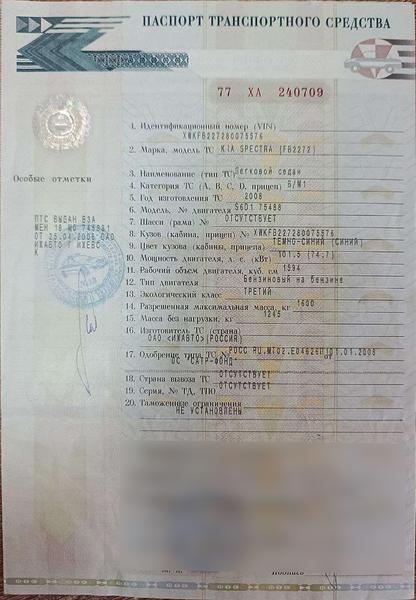 ПАСПОРТ ТРАНСПОРТНОГО СРЕДСТВА
77 ХА 240709
1. Идентификационный номер (VIN)
XWKFB227280075576
2. Марка, модель ТС KIA SPECTRA (FB2272)
3. Наименование (тип ТС) Легковой седан
4. Категория ТС (A, B, C, D, прицеп) B/M1
5. Год изготовления ТС 2008
6. Модель, № двигателя S6D1 75488
7. Шасси (рама) № ОТСУТСТВУЕТ
8. Кузов (кабина, прицеп) № XWKFB227280075576
9. Цвет кузова (кабины, прицепа) ТЕМНО-СИНИЙ (СИНИЙ)
10. Мощность двигателя, л. с. (кВт) 101.5 (74.7)
11. Рабочий объем двигателя, куб. см 1594
12. Тип двигателя Бензиновый на бензине
13. Экологический класс ТРЕТИЙ
14. Разрешенная максимальная масса, кг 1600
15. Масса без нагрузки, кг 1245
16. Изготовитель ТС (страна)
ОАО «ИЖАВТО»(РОССИЯ)
17. Одобрение типа ТС № РОСС RU.MT02.E04626 от 01.01.2008
ОС "САТР-ФОНД"
18. Страна вывоза ТС ОТСУТСТВУЕТ
19. Серия, № ТД, ТПО ОТСУТСТВУЕТ
20. Таможенные ограничения
НЕ УСТАНОВЛЕНЫ
Особые отметки
ПТС ВЫДАН ВЗА
МЕН 18
ОТ 25.04.2008 ОАО
ИЖАВТО Г ИЖЕВС
К
Подпись